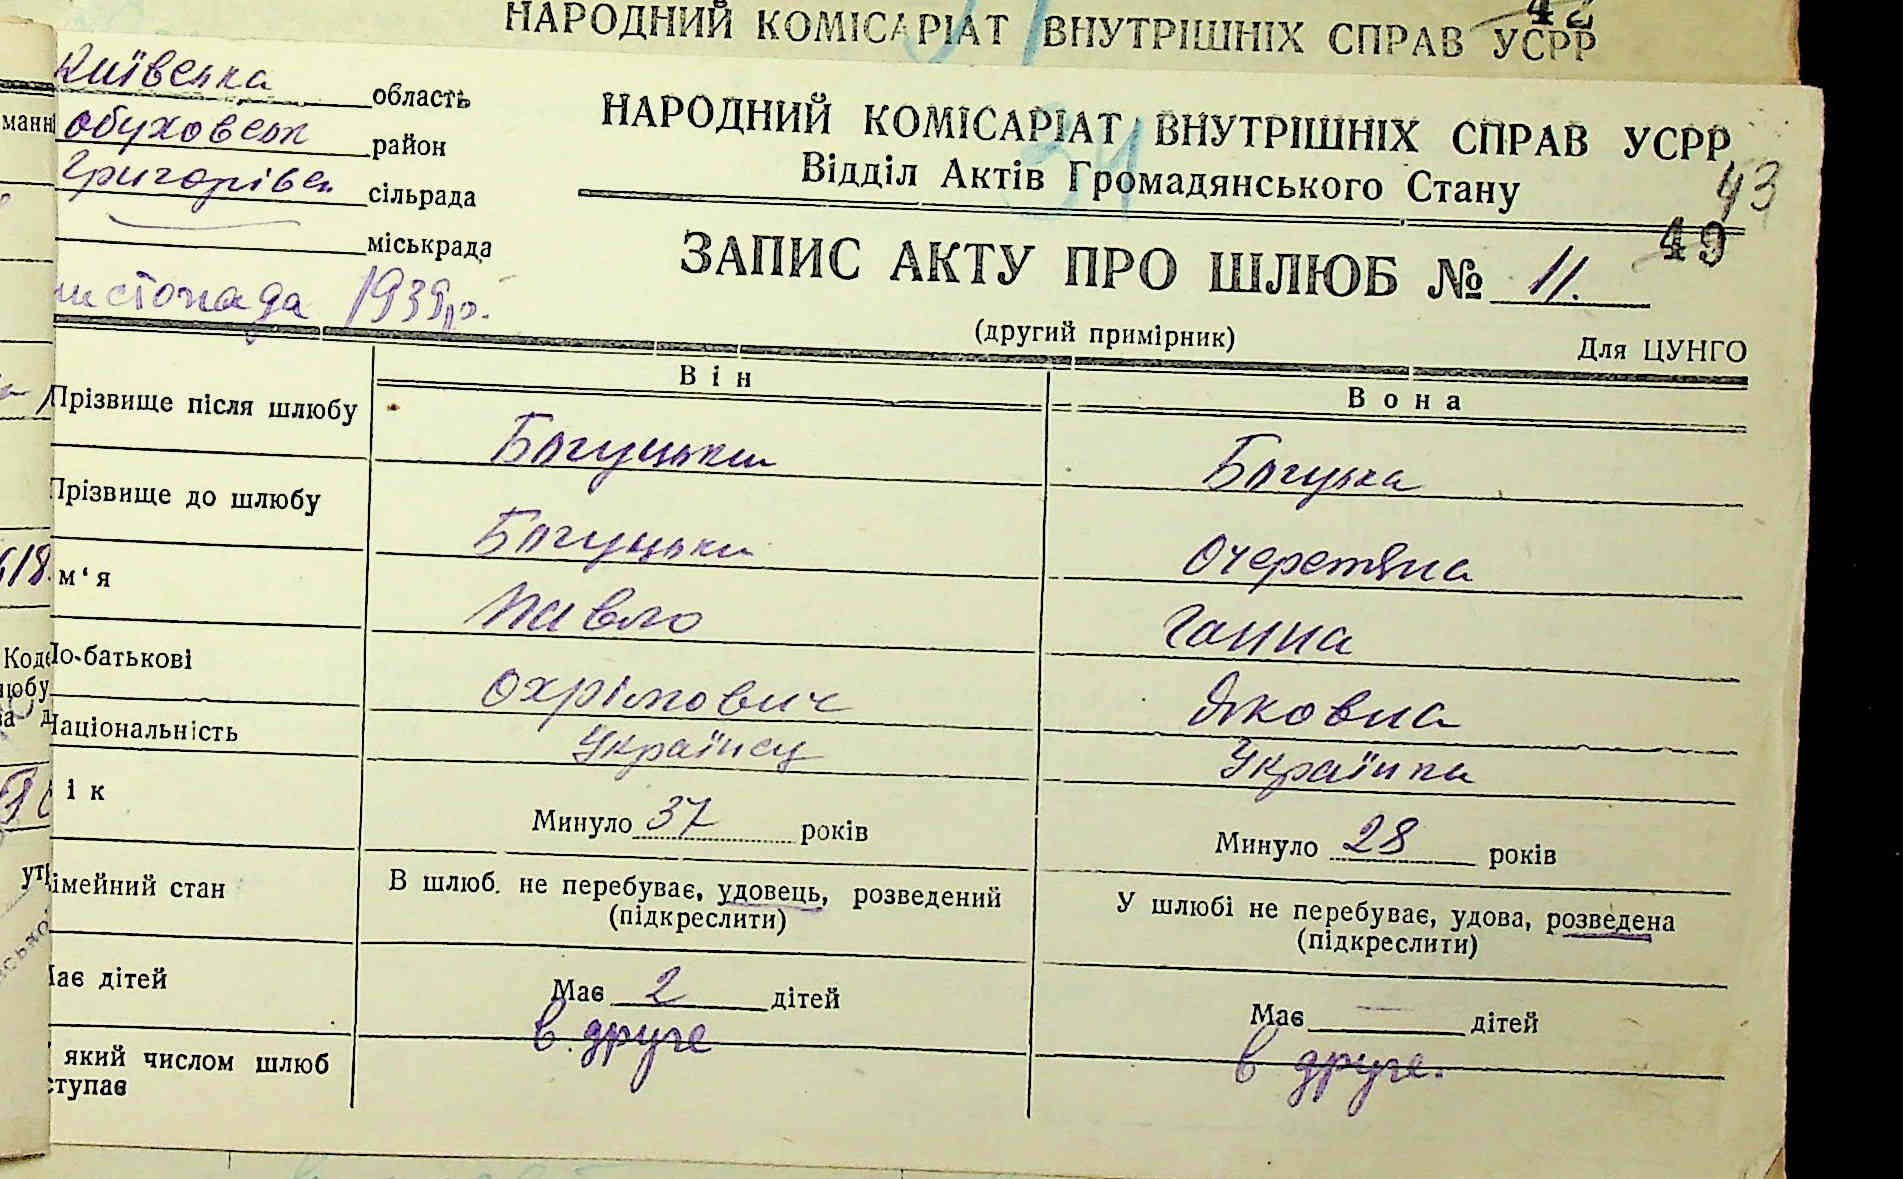 НАРОДНИЙ КОМІСАРІАТ ВНУТРІШНІХ СПРАВ УСРР
42
Київська область
Обуховськ район
Григорівск сільрада
міськрада
листопада 1939 р.
НАРОДНИЙ КОМІСАРІАТ ВНУТРІШНІХ СПРАВ УСРР
34
Відділ Актів Громадянського Стану
43
49
ЗАПИС АКТУ ПРО ШЛЮБ № 11.
(другий примірник)
Для ЦУНГО
Він Вона
Прізвище після шлюбу Багуцький Багуцка
Прізвище до шлюбу Багуцьки Очеретяна
м'я Павло Ганна
По-батькові Охрімович Яковна
Національність Українец Українка
ік Минуло 37 років Минуло 28 років
імейний стан В шлюб. не перебуває, удовець, розведений (підкреслити) У шлюбі не перебуває, удова, розведена (підкреслити)
Має дітей Має 2 дітей Має — дітей
який числом шлюб ступає в друге в друге.